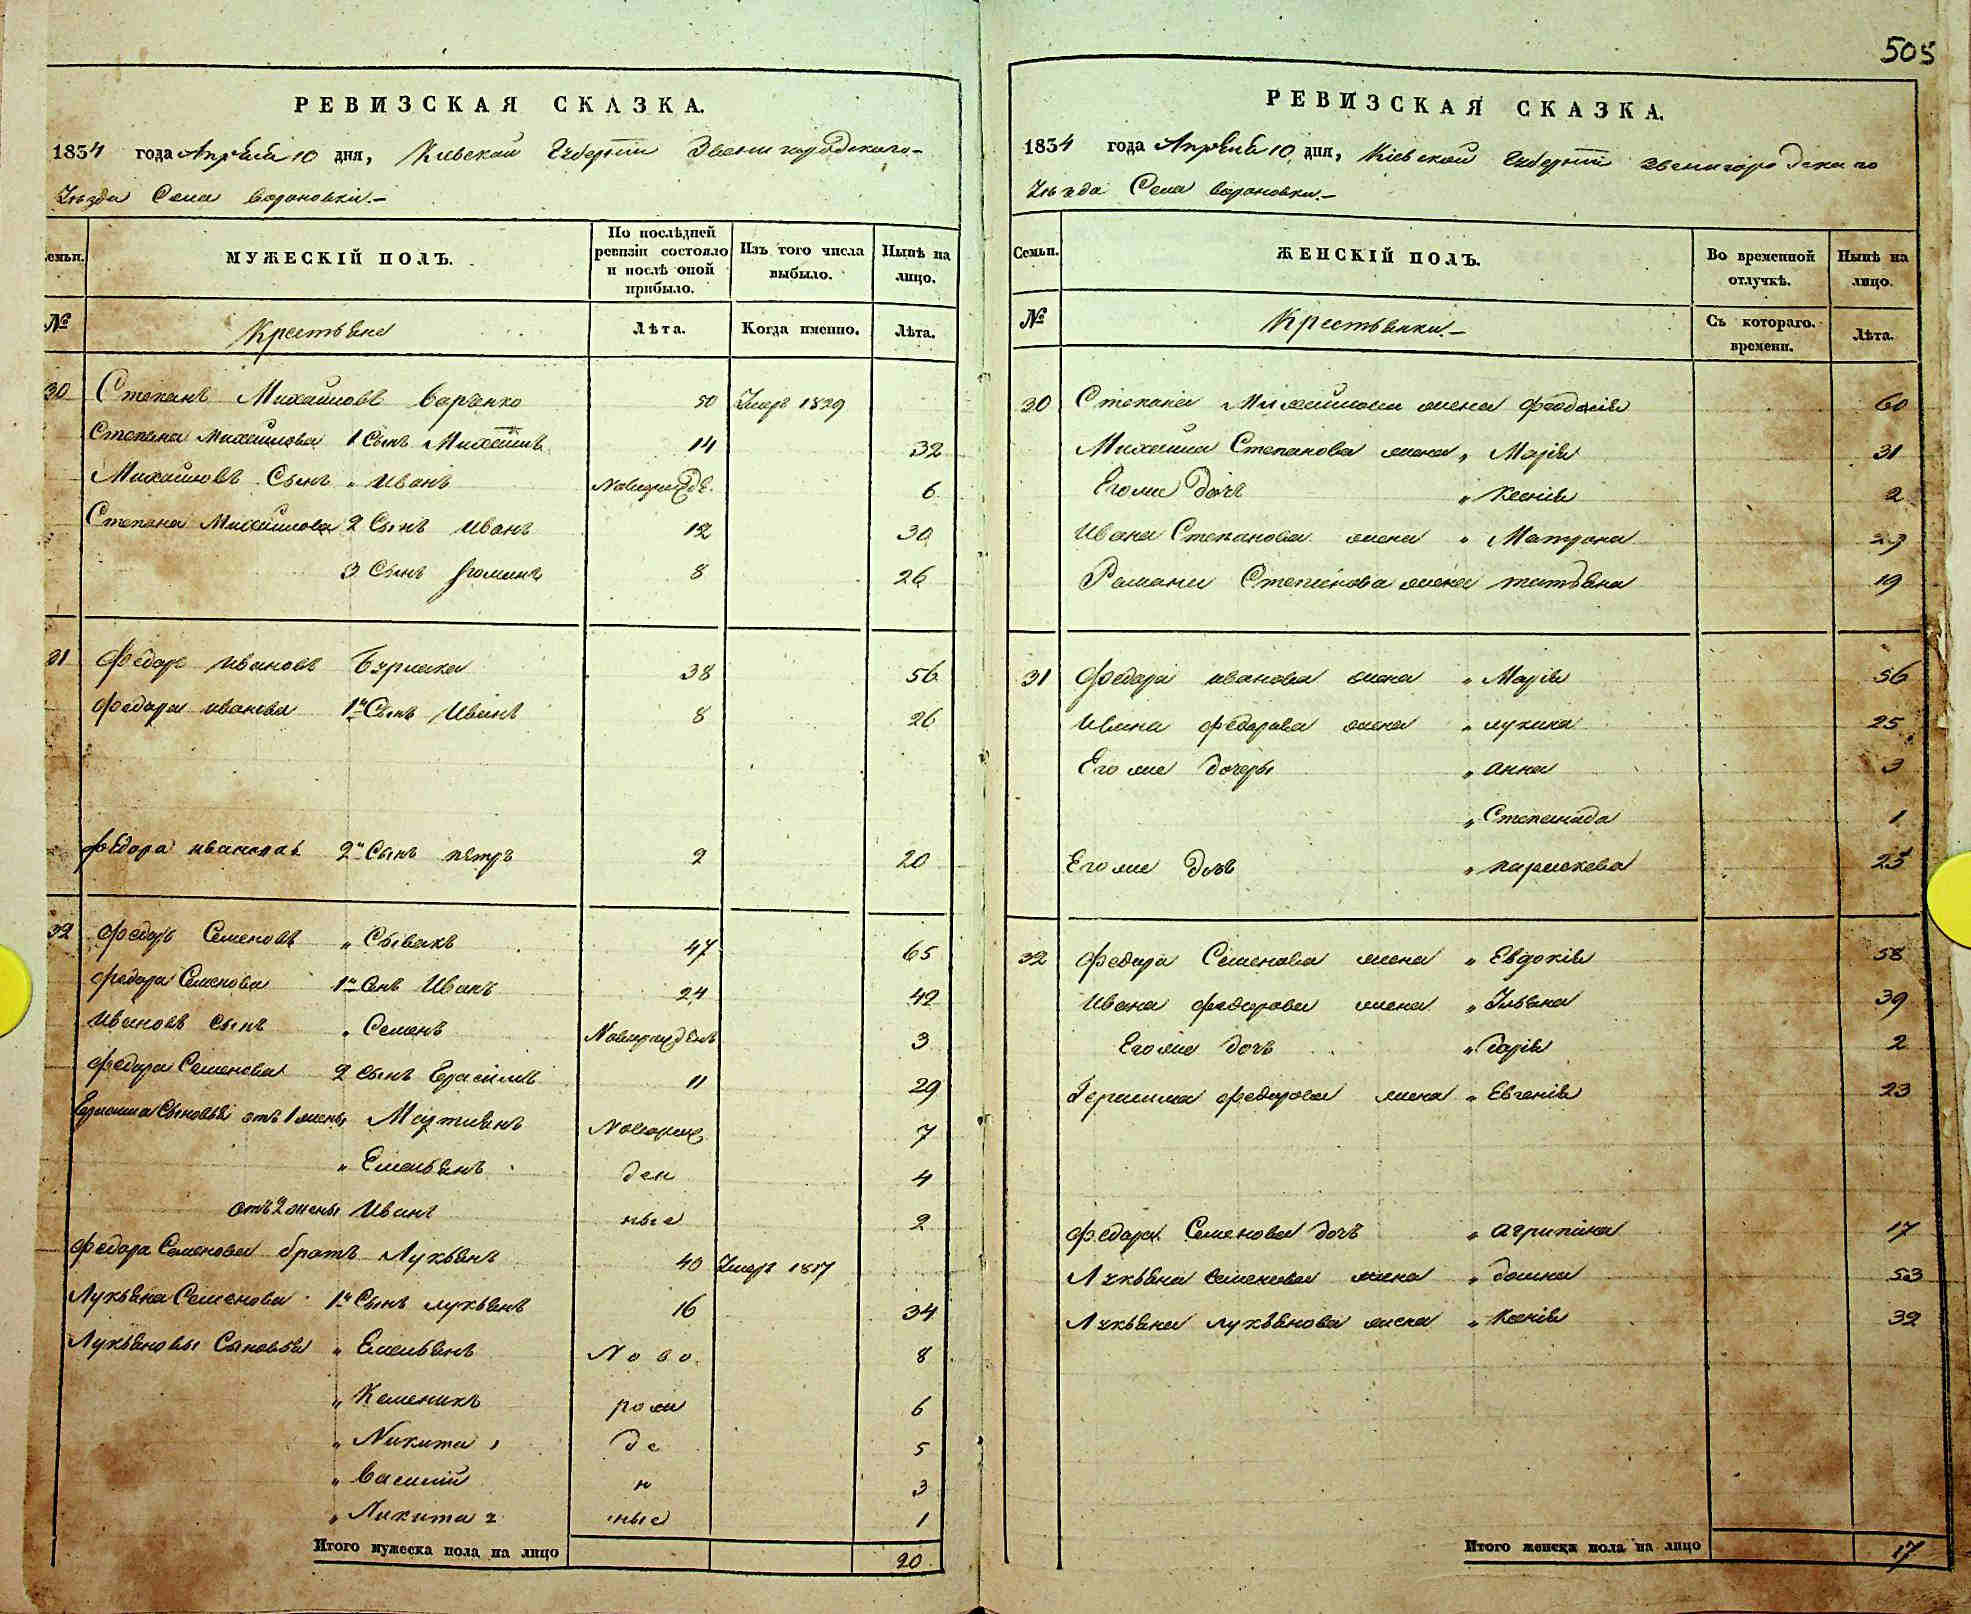 505
РЕВИЗСКАЯ СКАЗКА.
1834 года Апрѣля 10 дня, Кіевской Губерніи Звенигородскаго
Уѣзда Села Вороновки.
Семьи. МУЖЕСКІЙ ПОЛЪ. По послѣдней ревизіи состояло и послѣ оной прибыло. Изъ того числа выбыло. Нынѣ на лицо.
№ Крестьяне Лѣта. Когда именно. Лѣта.
30 Степанъ Михайловъ 50 Умеръ 1829
Степана Михайлова 1 Сынъ Михайлъ 14 32
Михайловъ Сынъ „ Иванъ Новорожде. 6
Степана Михайлова 2 Сынъ Иванъ 12 30
3 Сынъ Романъ 8 26
31 Федоръ Ивановъ 38 56
Федора Иванова 1й Сынъ Иванъ 8 26
Федора Иванова 2й Сынъ Петръ 2 20
32 Федоръ Семеновъ „ Спѣвакъ 47 65
Федора Семенова 1й Сынъ Иванъ 24 42
Ивановъ Сынъ „ Семенъ Новорожденъ 3
Федора Семенова 2 Сынъ Герасимъ 11 29
Герасима Сыновья отъ 1 жены Мартинъ Новорож 7
„ Емельянъ ден 4
отъ 2 жены Иванъ ные 2
Федора Семенова братъ Лукьянъ 40 Умеръ 1817
Лукьяна Семенова 1й Сынъ Лукьянъ 16 34
Лукьяновы Сыновья „ Емельянъ Ново 8
„ рож 6
„ Никита 1 де 5
„ Василій н 3
„ Никита 2 ные 1
Итого мужеска пола на лицо 20
РЕВИЗСКАЯ СКАЗКА.
1834 года Апрѣля 10 дня, Кіевской Губерніи Звенигородскаго
Уѣзда Села Вороновки.
Семьи. ЖЕНСКІЙ ПОЛЪ. Во временной отлучкѣ. Нынѣ на лицо.
№ Крестьянки. Съ котораго времени. Лѣта.
30 Степана Михайлова жена Феодосія 60
Михайла Степанова жена „ Марія 31
Его же дочь „ Ксенія 2
Ивана Степанова жена „ Матрона 29
Романа Степанова жена татьяна 19
31 Федора Иванова жена „ Марія 56
Ивана Федорова жена „ 25
Его же дочеры „ Анна 3
„ Степанида 1
Его же дочь „ параскева 25
32 Федора Семенова жена „ Евдокія 58
Ивана Федорова жена „ Ульяна 39
Его же дочь „ Дарія 2
Герасима Федорова жена „ Евгенія 23
Федора Семенова дочь „ Агрипина 17
Лукьяна Семенова жена „ домна 53
Лукьяна Лукьянова жена „ Ксенія 32
Итого женска пола на лицо 17